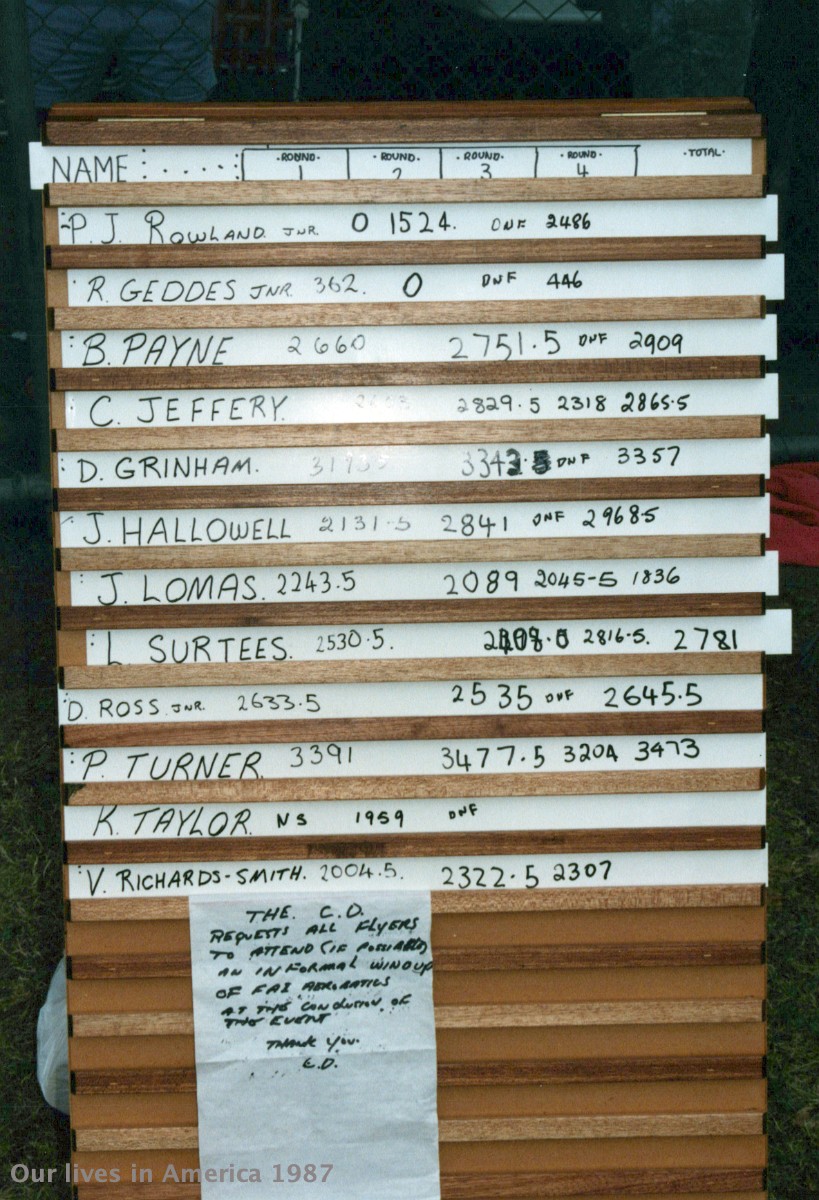 NAME : . . . . : ·ROUND· 1 ·ROUND· 2 ·ROUND· 3 ·ROUND· 4 ·TOTAL·
P. J. ROWLAND JNR. 0 1524. DNF 2486
R. GEDDES JNR. 362. 0 DNF 446
B. PAYNE 2660 2751.5 DNF 2909
C. JEFFERY. 2829.5 2318 2865.5
D. GRINHAM. DNF 3357
J. HALLOWELL 2131.5 2841 DNF 2968.5
J. LOMAS. 2243.5 2089 2045-5 1836
L SURTEES. 2530.5. 2816.5. 2781
D. ROSS JNR. 2633.5 2535 DNF 2645.5
P. TURNER. 3391 3477.5 3204 3473
K. TAYLOR. NS 1959 DNF
V. RICHARDS-SMITH. 2004.5. 2322.5 2307
THE. C.D.
REQUESTS ALL FLYERS
TO ATTEND (IF POSSIABLE)
AN INFORMAL WINDUP
OF FAI AEROBATICS
AT THE CONCLUSION OF
THE EVENT
THANK YOU.
C.D.
Our lives in America 1987